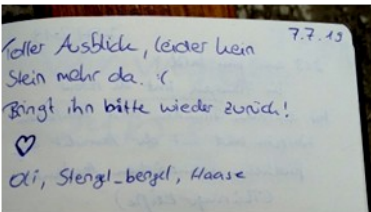 7.7.19
Toller Ausblick, leider kein
Stein mehr da. :(
Bringt ihn bitte wieder zurück!
♡
Oli, Stengel_bengel, Haase